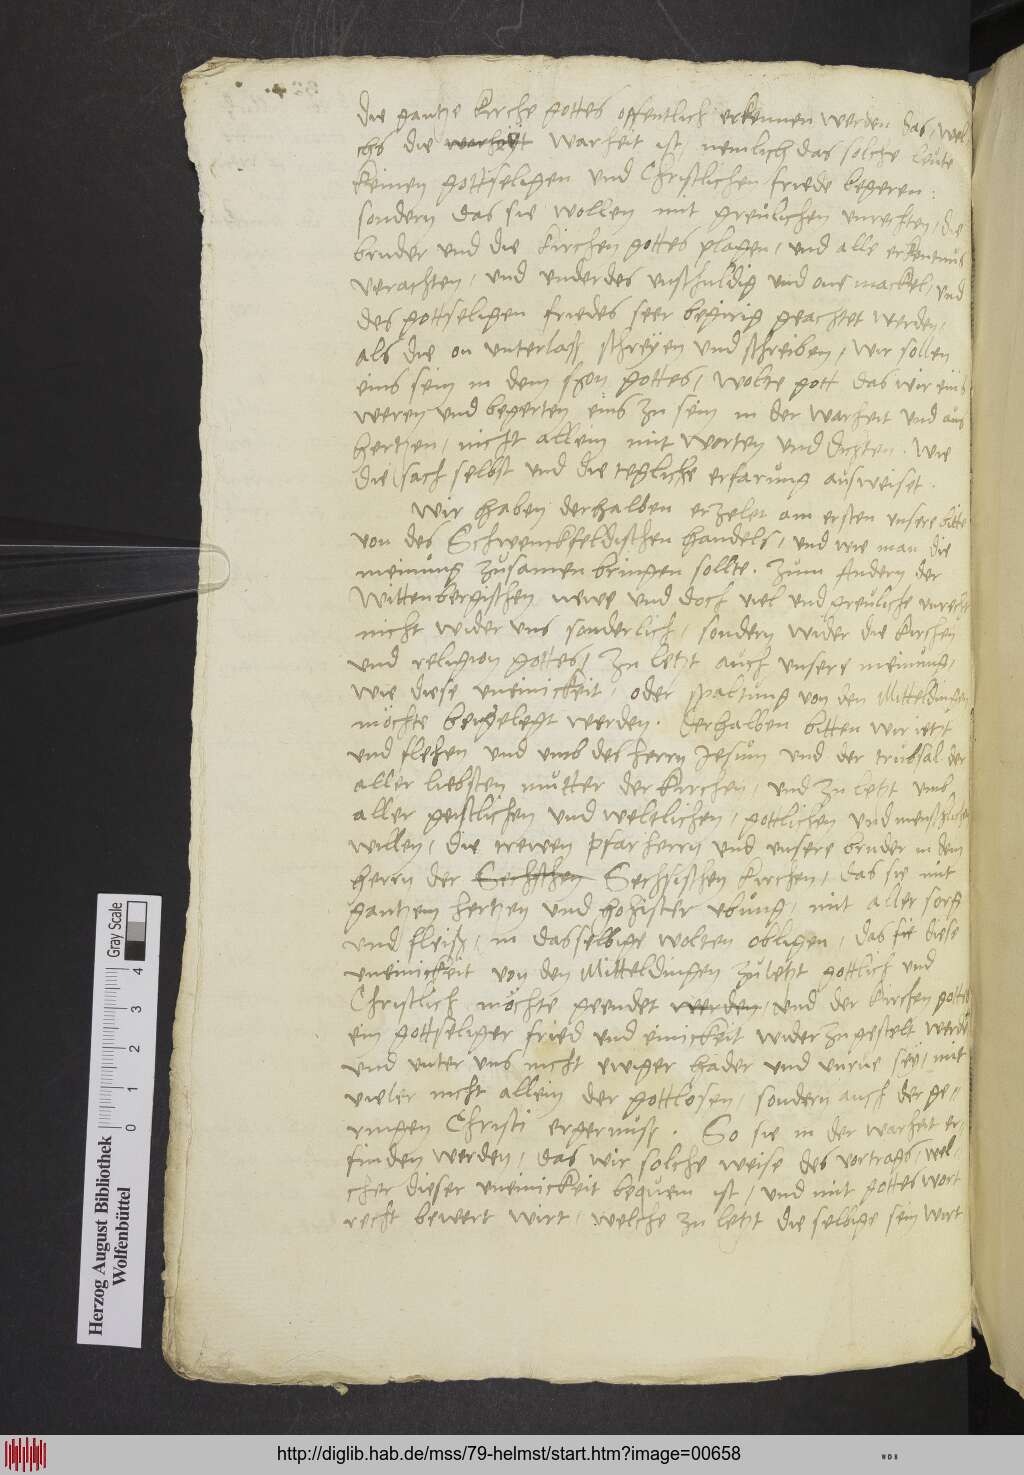 die gantze Kirche gottes offentlich erkennen werden das, wel-
chs die warheit warheit ist, nemlich das solche leute
keinen gottseligen und Christlichen friede begeren:
sondern das sie wollen mit greulichen unrechten, die
bruder und die Kirchen gottes plagen, und alle erkentnus
verachten, und underdes unschuldig und one mackel, und
des gottseligen friedes seer begirig geachtet werden,
als die on unterlass schreÿen und schreiben, wir sollen
eins sein in dem son gottes, wolte gott das wir eins
weren und begerten eins zu sein in der warheit und aus
hertzen, nicht allein mit worten und dichten. wie
die sach selbst und die tegliche erfarung ausweiset.
Wir haben derhalben erzelet am ersten unsere bitte
von des Schwenckfeldischen handels, und wie man die
meinung zusamen bringen sollte. Zum Andern der
Wittenbergischen newe und doch viel und greuliche unrecht
nicht wider uns sonderlich, sondern wider die kirchen
und religion gottes, Zu letzt auch unsere meinung,
wie diese uneinickeit, oder spaltung von den Mitteldingen
möchte beÿgelegt werden. Derhalben bitten wir jetzt
und flehen und umb des herrn Jesum und der trubsal der
aller liebsten mutter der Kirchen, und zu letzt umb
aller geistlichen und weltlichen, gottlichen und menschlichen
willen, die trewen pfarherrn und unsere bruder in dem
herrn der Sechschen Sechsischen kirchen, das sie mit
gantzem hertzen und hohister ubung, mit aller sorg
und fleiss, in dasselbige wolten obligen, das sie diese
uneinickeit von den Mitteldingen zuletzt gottlich und
Christlich möchte geendet werden, und der kirchen gottes
ein gottseliger fried und einickeit wider zugestelt werde
und unter uns nicht ewiger hader und unrue seÿ, mit
vieler nicht allein der gottlosen, sondern auch der ge-
ringen Christi ergernuss. So sie in der warheit er-
finden werden, das wir solche weise des vortrags, wel-
cher dieser uneinickeit bequem ist, und mit gottes wort
recht bewert wirt, welche zu letzt die selbige sein wirt
Herzog August Bibliothek
Wolfenbüttel
0 1 2 3 4
Gray Scale
http://diglib.hab.de/mss/79-helmst/start.htm?image=00658